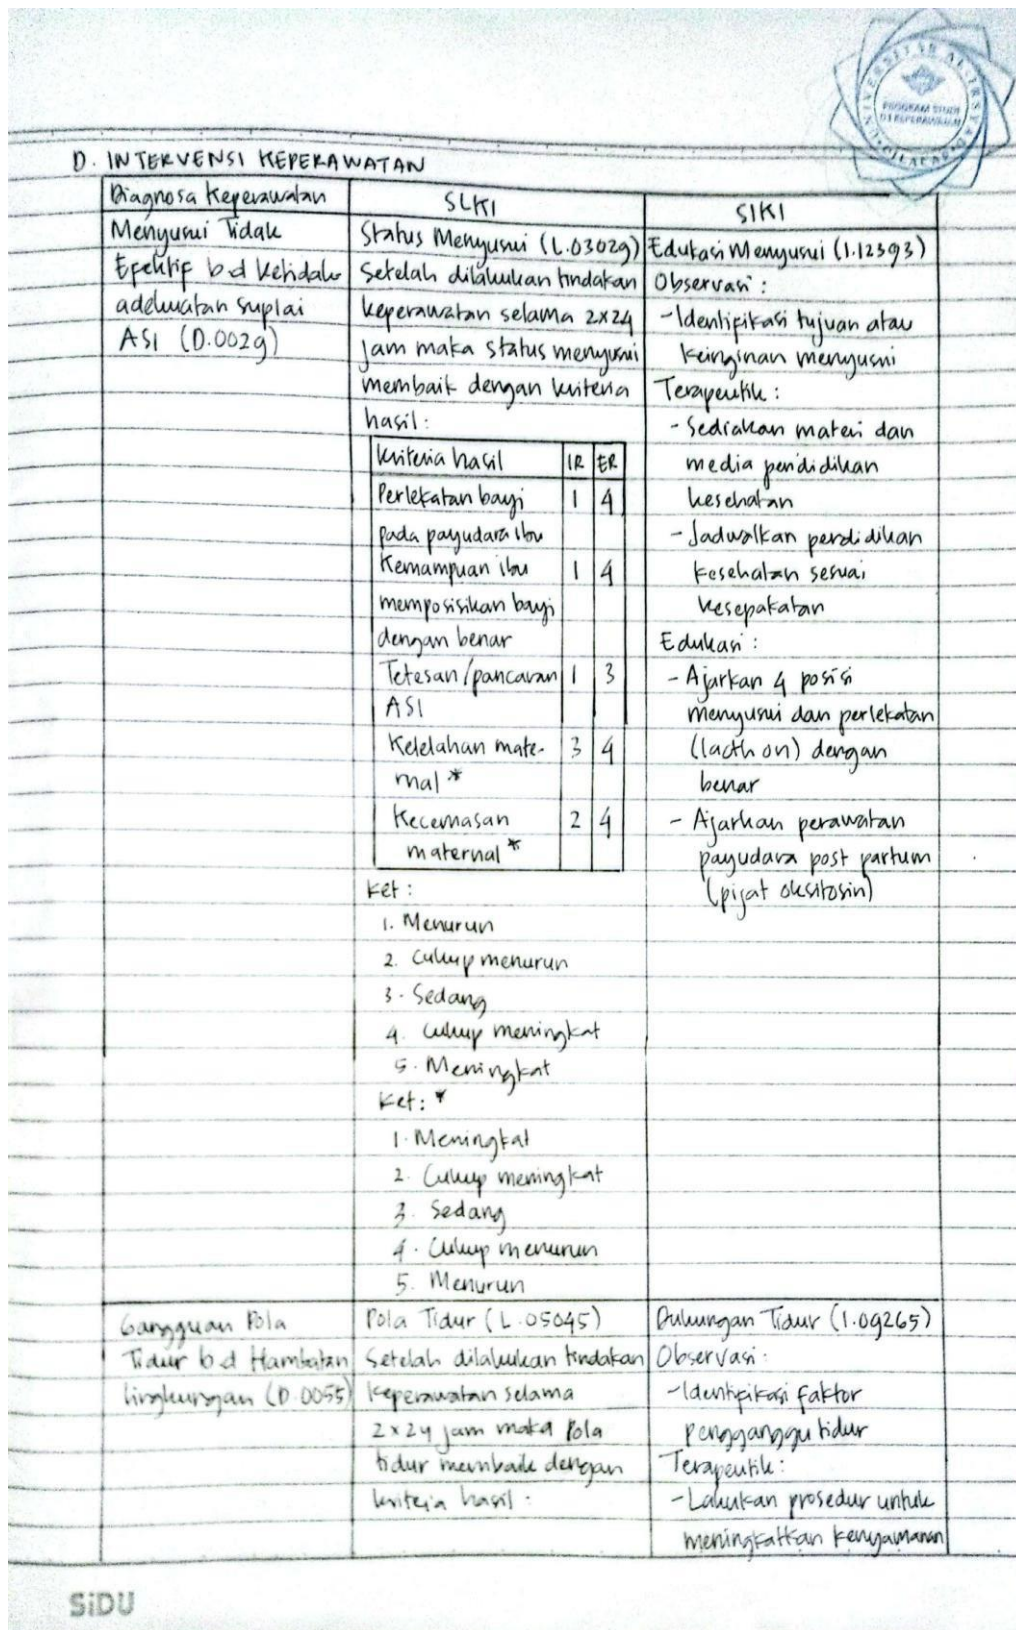 UNIVERSITAS AL-IRSYAD
PROGRAM STUDI
D3 KEPERAWATAN
CILACAP
D. INTERVENSI KEPERAWATAN
Diagnosa Keperawatan
Menyusui Tidak
Efektif b.d Ketidak
adekuatan suplai
ASI (D.0029)
SLKI
Status Menyusui (L.03029)
Setelah dilakukan tindakan
keperawatan selama 2x24
jam maka status menyusui
membaik dengan kriteria
hasil :
Kriteria hasil IR ER
Perlekatan bayi 1 4
pada payudara ibu
Kemampuan ibu 1 4
memposisikan bayi
dengan benar
Tetesan/pancaran 1 3
ASI
Kelelahan mate- 3 4
rnal *
Kecemasan 2 4
maternal *
Ket :
1. Menurun
2. Cukup menurun
3. Sedang
4. Cukup meningkat
5. Meningkat
Ket : *
1. Meningkat
2. Cukup meningkat
3. Sedang
4. Cukup menurun
5. Menurun
SIKI
Edukasi Menyusui (1.12393)
Observasi :
- Identifikasi tujuan atau
keinginan menyusui
Terapeutik :
- Sediakan materi dan
media pendidikan
kesehatan
- Jadwalkan pendidikan
kesehatan sesuai
kesepakatan
Edukasi :
- Ajarkan 4 posisi
menyusui dan perlekatan
(lacth on) dengan
benar
- Ajarkan perawatan
payudara post partum
(pijat oksitosin)
Gangguan Pola
Tidur b.d Hambatan
lingkungan (D.0055)
Pola Tidur (L.05045)
Setelah dilakukan tindakan
keperawatan selama
2x24 jam maka Pola
tidur membaik dengan
kriteria hasil :
Dukungan Tidur (1.09265)
Observasi :
- Identifikasi faktor
pengganggu tidur
Terapeutik :
- Lakukan prosedur untuk
meningkatkan kenyamanan
SiDU